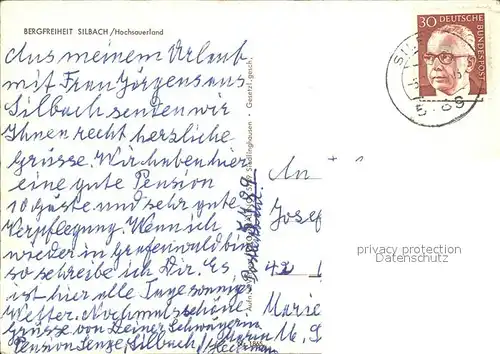 BERGFREIHEIT SILBACH /Hochsauerland
Aus meinem Urlaub
mit Frau Jörgens aus
Silbach senden wir
Ihnen recht herzliche
Grüsse. Wir haben hier
eine gute Pension
10 Gäste und sehr gute
Verpflegung. Wenn ich
wieder in Grafenwald bin
so schreibe ich Dir. Es
ist hier alle Tage sonnige
Wetter. Nochmals schöne
Grüsse von Deiner Schwägerin
Pension Senge, Silbach, Maria M. S
Gesetzl. gesch.
Siedlinghausen
30 DEUTSCHE
BUNDESPOST
An
Josef
42
Marie
privacy protection
watermark